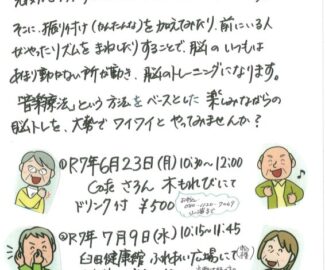 そこに、振り付け(かんたんな)を加えてみたり、前にいる人
がやったリズムをまねしたりすることで、脳の いつもは
あまり動かない所が動き、脳のトレーニングになります。
"音楽療法"という方法をベースとした 楽しみながらの
脳トレを、大勢で ワイワイと やってみませんか?
@R7年6月23日(月)10:30~12:00
Cafe さろん 木もれびにて
ドリンク付 ¥500
@R7年7月9日(水)10:15~11:45
臼田健康館 ふれあい広場にて